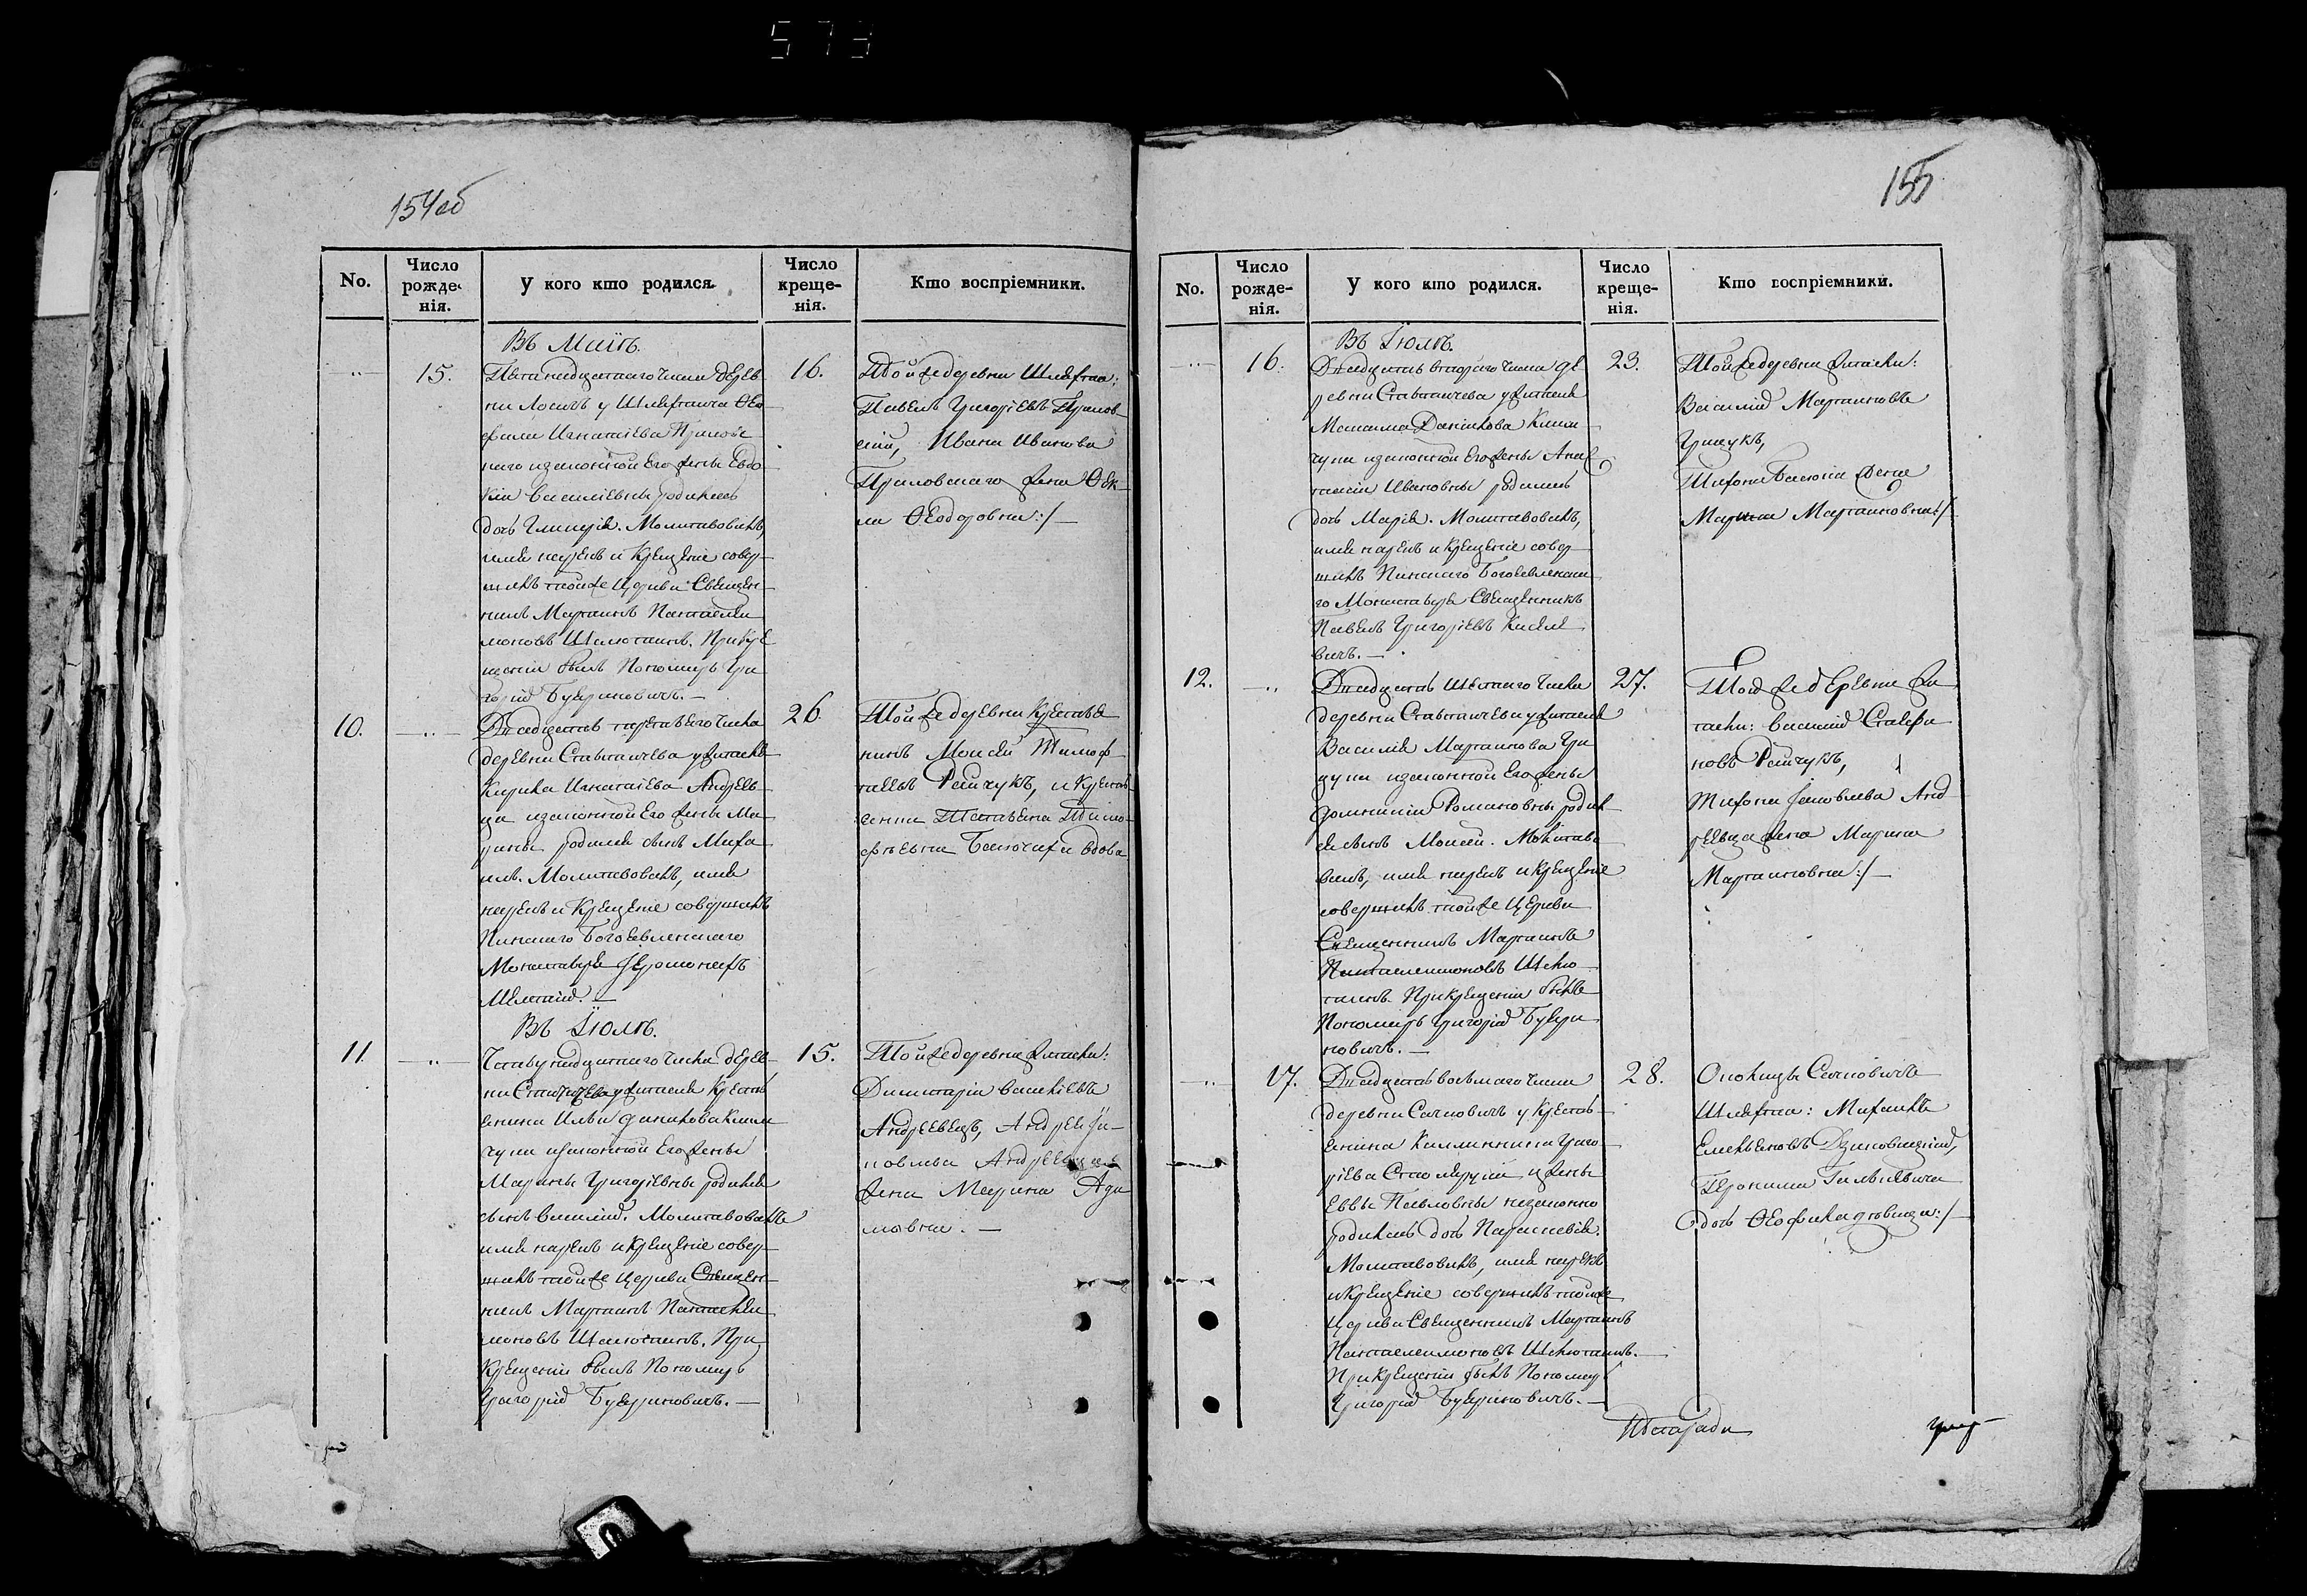 573
154об
No.
Число рожде-нія.
У кого кто родился.
Число креще-нія.
Кто воспріемники.
Въ Маіѣ.
15.
16.
Пятънадцатаго числа дерев
ни Лосичъ у Шляхтича Ѳео
фила Игнатіева Прилов
наго изаконной Его жены Евдо
кіи Василіевны родилась
дочь Гликерія. Молитвовалъ,
имя нарекъ и Крещеніе совер
шилъ тойже Церкви Священ
никъ Мартинъ Пантелеи
моновъ Шелютинъ. При Кре
щеніи былъ Пономарь Гри
горій Бугриновичъ.
Той же деревни Шляхта:
Павелъ Григоріевъ Прилов
скій, Ивана Иванова
Приловскаго жена Ѳек
ла Ѳеодоровна:/
10.
26.
Двадцать третьяго числа
деревни Ставтичева у жителя
Кирила Игнатіева Андреев
ца изаконной Его жены Ма
рины родился сынъ Миха
илъ. Молитвовалъ, имя
нарекъ и Крещеніе совершилъ
Пинскаго Богоявленскаго
Монастыря Іеромонахъ
Мелетій.
Той же деревни Крестья
нинъ Моисей Тимоф
Рейчукъ, и Кресть
янка Татьяна Тимо
фѣевна вдова
Въ Іюлѣ.
11.
15.
Четырнадцатаго числа дерев
ни у жителя Кресть
янина Ильи Данилова Клим
чука изаконной Его жены
Марины Григоріевны родился
сынъ Василій. Молитвовалъ
имя нарекъ и Крещеніе совер
шилъ тойже Церкви Священ
никъ Мартинъ Пантелеи
моновъ Шелютинъ. При
Крещеніи былъ Пономарь
Григорій Бугриновичъ.
Той же деревни жители:
Димитрій Василіевъ
Андреевецъ, Андрея Я
ковлева Андреевца
жена Марина Ада
мовна.
155
No.
Число рожде-нія.
У кого кто родился.
Число креще-нія.
Кто воспріемники.
Въ Іюлѣ.
16.
23.
Двадцать втораго числа де
ревни Ставтичева у жителя
Максима Данилова Клим
чука изаконной Его жены Анас
тасіи Ивановны родилась
дочь Марія. Молитвовалъ,
имя нарекъ и Крещеніе совер
шилъ Пинскаго Богоявленска
го Монастыря Священникъ
Павелъ Григоріевъ Киселе
вичъ.
Той же деревни жители:
Василій Мартиновъ
Грицукъ,
Тихона жена
Мартиновна:/
12.
27.
Двадцать шестаго числа
деревни Ставтичева у жителя
Василія Мартинова Гри
цука изаконной Его жены
Домникіи Романовны родил
ся сынъ Моисей. Молитво
валъ, имя нарекъ и Крещеніе
совершилъ тойже Церкви
Священникъ Мартинъ
Пантелеимоновъ Шелю
тинъ. При Крещеніи былъ
Пономарь Григорій Бугри
новичъ.
Той же деревни жи
тели: Василій Стефа
новъ Рейчукъ,
Тихона Яковлева Анд
реевца жена Марина
Мартиновна:/
17.
28.
Двадцать восьмаго числа
деревни Сачковичъ у Кресть
янина Каллиника Григо
ріева и жены
Еввы Павловны незаконно
родилась дочь Параскевія.
Молитвовалъ, имя нарекъ
и Крещеніе совершилъ тойже
Церкви Священникъ Мартинъ
Пантелеимоновъ Шелютинъ.
При Крещеніи былъ Пономарь
Григорій Бугриновичъ.
Околицы Сачковичъ
Шляхта: Михаилъ
Емельяновъ Дзиковицкій,
Іеронима
дочь Ѳеофила дѣвица:/